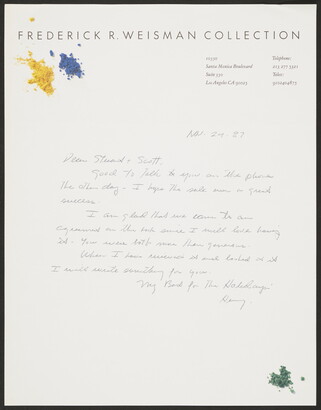 FREDERICK R. WEISMAN COLLECTION
Santa Monica Boulevard
Los Angeles CA
Telephone
213 277 5321
Telex
Nov 24 87
Dear Stewart & Scott,
Good to talk to again on the phone
the other day - I hope the sale was a great
success
I am glad that we came to an
agreement on the bob since I will love having
it - You were both more than generous.
When I have received it and looked at it
I will write something for you
Very Best for the Holidays
Henry